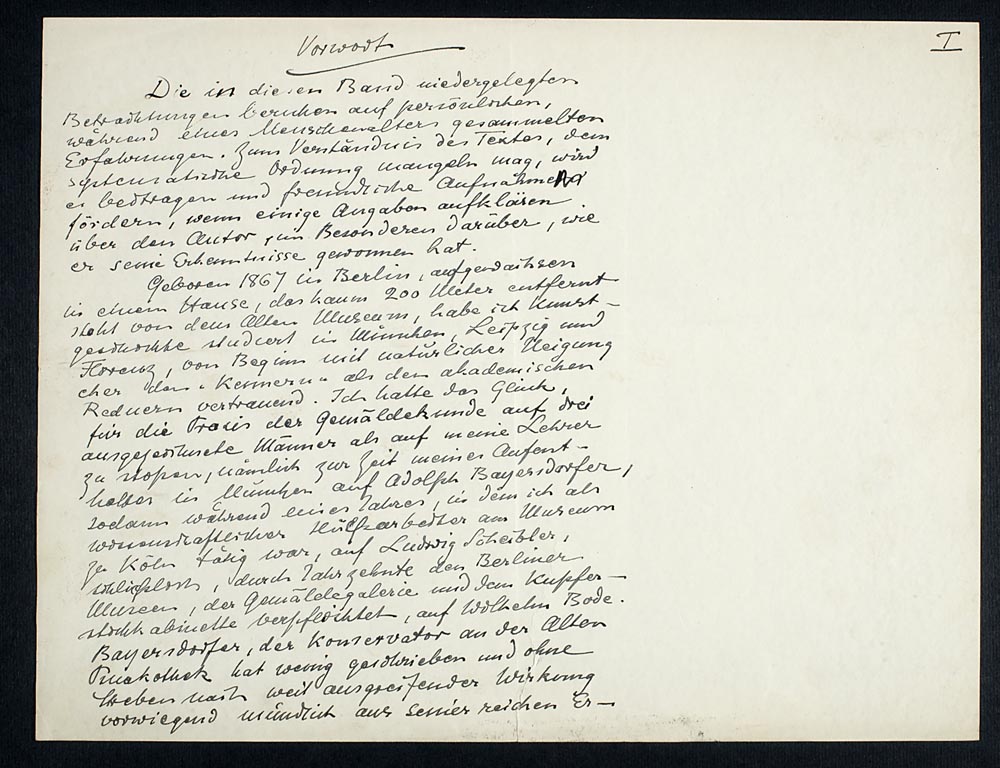 Vorwort
I
Die in diesen Band niedergelegten
Betrachtungen beruhen auf persönlichen,
während eines Menschenalters gesammelten
Erfahrungen. Zum Verständnis des Textes, dem
systematische Ordnung mangeln mag, wird
es beitragen und freundliche Aufnahme
fördern, wenn einige Angaben aufklären
über den Autor, im Besonderen darüber, wie
er seine Erkenntnisse gewonnen hat.
Geboren 1867 in Berlin, aufgewachsen
in einem Hause, das kaum 200 Meter entfernt
steht von dem Alten Museum, habe ich Kunst-
geschichte studiert in München, Leipzig und
Florenz, von Beginn mit natürlicher Neigung
eher den „Kennern" als den akademischen
Rednern vertrauend. Ich hatte das Glück,
für die Praxis der Gemäldekunde auf drei
ausgezeichnete Männer als auf meine Lehrer
zu stossen, nämlich zur Zeit meines Aufent-
haltes in München auf Adolph Bayersdorfer,
sodann während eines Jahres, in dem ich als
wissenschaftlicher Hülfsarbeiter am Museum
zu Köln tätig war, auf Ludwig Scheibler,
schließlich, durch Jahrzehnte den Berliner
Museen, der Gemäldegalerie und dem Kupfer-
stichkabinette verpflichtet, auf Wilhelm Bode.
Bayersdorfer, der Konservator an der Alten
Pinakothek hat wenig geschrieben und ohne
Streben nach weit ausgreifender Wirkung
vorwiegend mündlich aus seiner reichen Er-